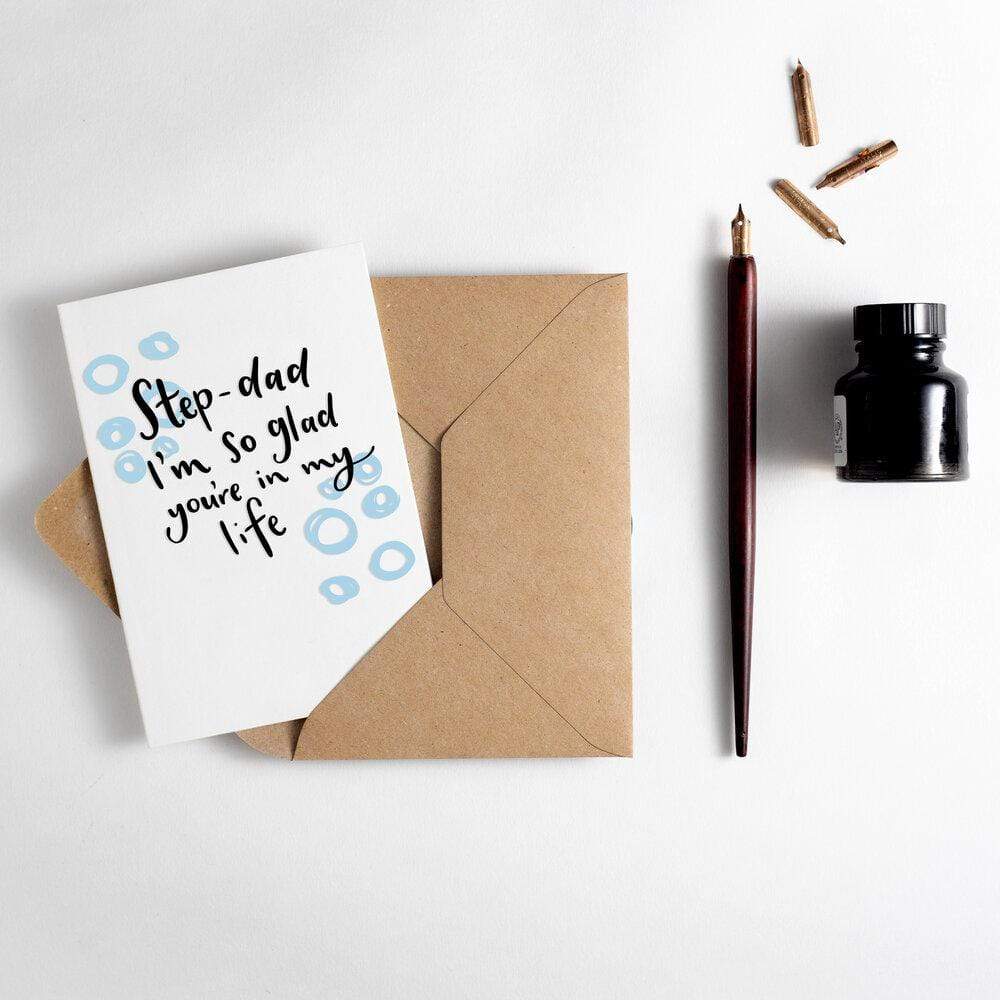 Step-dad
I'm so glad
you're in my
life